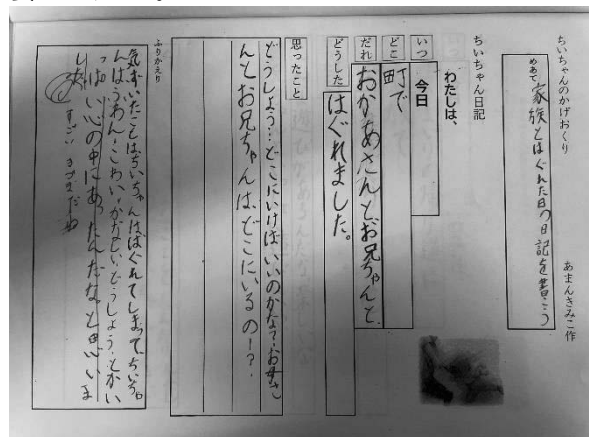 ちいちゃんのかげおくり
あまんきみこ作
めあて 家族とはぐれた日の日記を書こう
ちいちゃん日記
わたしは、
いつ 今日
どこ 町で
だれ おかあさんとお兄ちゃんと
どうした はぐれました。
思ったこと
どうしよう…どこにいけばいいのかな?お母さ
んとお兄ちゃんは、どこにいるの!?
ふりかえり
気づいたことはちいちゃんははぐれてしまって、ちいちゃ
んはふあん・こわい・かなしい・どうしよう・とかい
っぱい心の中にあったんだな。と思いま
した
すごい きづきだね